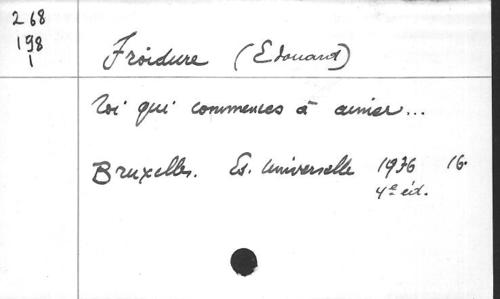 268
198
1
Froidure (Edouard)
Toi qui commences à aimer...
Bruxelles. Ed. Universelle 1936 16°
4e éd.